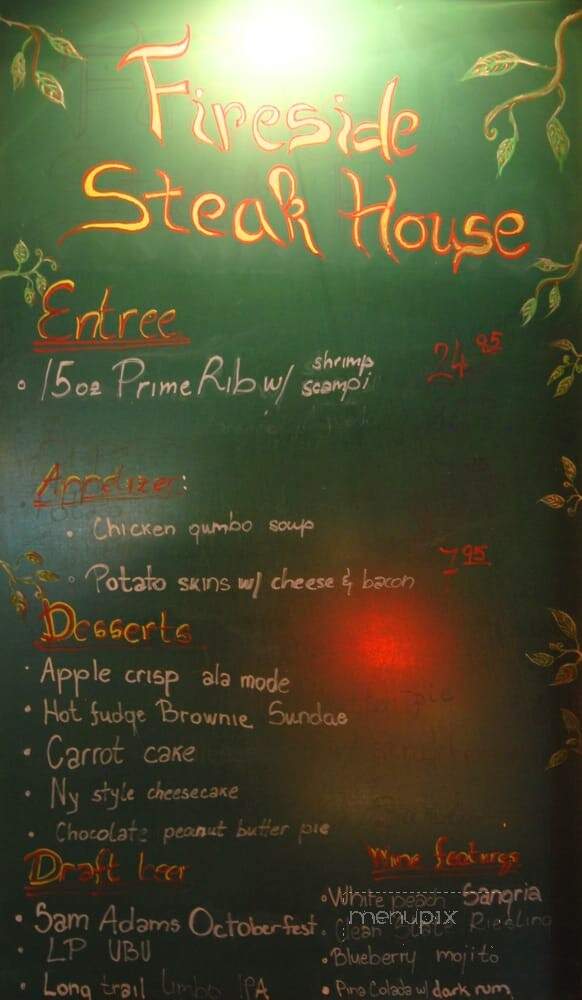 Fireside
Steak House
Entree
15oz Prime Rib w/ shrimp scampi 24.95
Appetizer:
Chicken gumbo soup
Potato skins w/ cheese & bacon 7.95
Desserts
Apple crisp ala mode
Hot fudge Brownie Sundae
Carrot cake
Ny style cheesecake
Chocolate peanut butter pie
Draft beer
Sam Adams Octoberfest
LP UBU
Long trail limbo IPA
Wine features
White peach Sangria
menupix
Clean Slate Riesling
Blueberry mojito
Pina Colada w/ dark rum